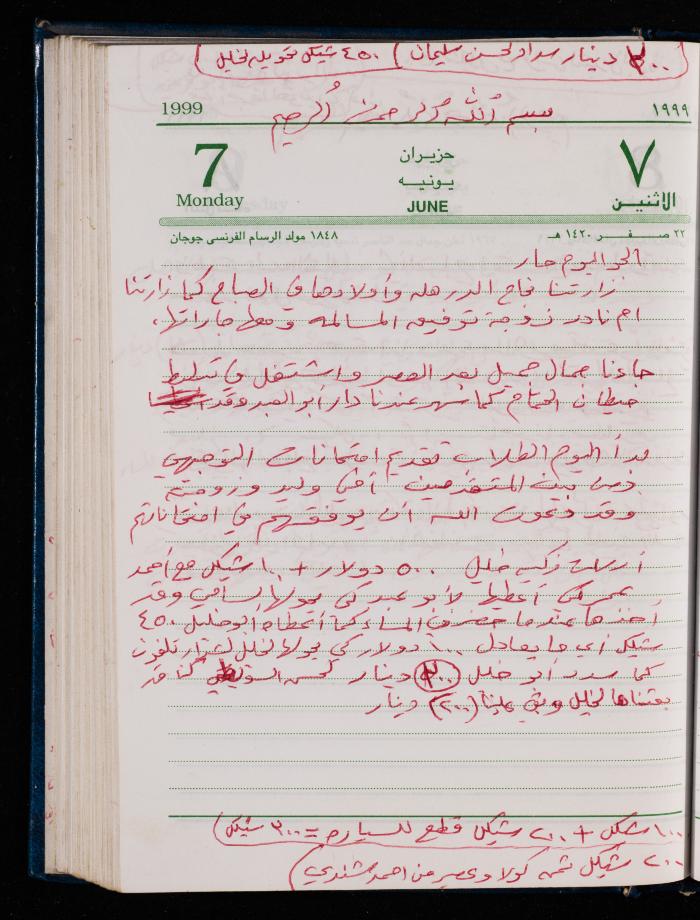 ٣٠٠ دينار سداد لحسن سليمان) (٤٥٠ شيكل تحويله لخليل)
1999 بسم الله الرحمن الرحيم ١٩٩٩
7 حزيران ٧
يونيه
Monday JUNE الاثنين
٢٢ صفر ١٤٢٠ هـ ١٨٤٨ مولد الرسام الفرنسى جوجان
الجو اليوم حار
زارتنا نجاح وأولادها في الصباح كما زارتنا
ام نادر زوجة توفيق المسالمه ومعها جاراتها.
جاءنا جمال جميل بعد العصر واشتغل في تبليط
حيطان الحمام كما سهر عندنا دار أبو العبد وقد
بدأ اليوم الطلاب تقديم امتحانات التوجيهي
ومن بين المتقدمين أخي وليد وزوجته
وقد دعوت الله أن يوفقهم في امتحاناتهم
أرسلت زكيه خليل ٥٠٠ دولار + ١٠٠ شيكل مع أحمد
كي أعطيها لأبو عبد كي يحولها لسامي وقد
أخذها عندما حضر في المساء كما أعطاه أبو خليل ٤٥٠
شيكل أي ما يعادل ١٠٠ دولار كي يحولها لخليل تلفون
كما سدد أبو خليل (٣٠٠) دينار لحسن كنا قد
بعثناها لخليل وبقي علينا (٢٠٠) دينار
١٠٠ شيكل + ٢٠٠ شيكل قطع للسياره = ٣٠٠ شيكل)
٢٠٠ شيكل ثمن كولا وعصير من احمد شندي)